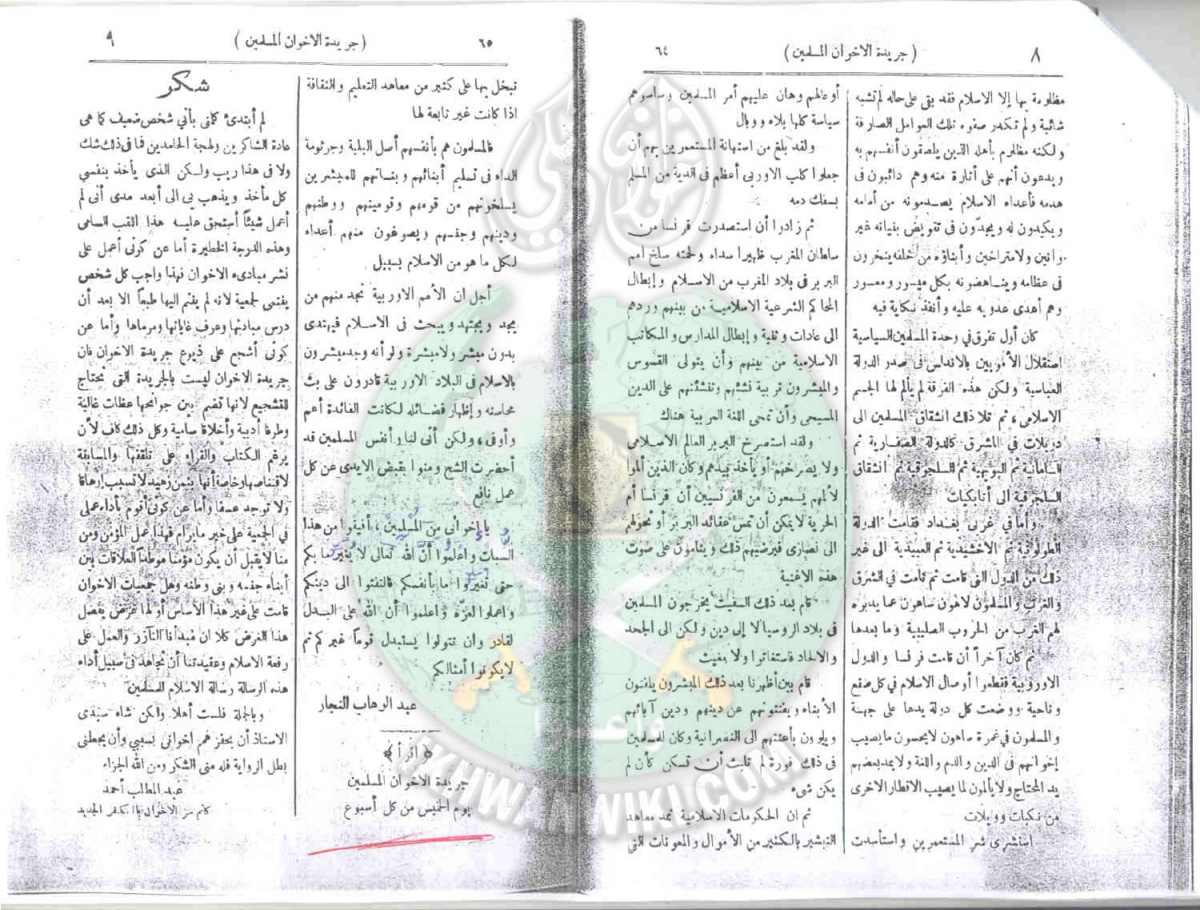 ٨
( جريدة الاخوان المسلمين )
٦٤
مظلومة بها إلا الاسلام فقد بقى على حاله لم تشبه
شائبة ولم تكدر صفوه تلك العوامل الصارفة
ولكنه مظلوم بأهله الذين يلصقون أنفسهم به
ويدعون أنهم على آثاره منه وهم دائبون فى
هدمه فأعداء الاسلام يصدمونه من أمامه
ويكيدون له ويجدّون فى تقويض بنيانه غير
وانين ولا متراخين وأبناؤه من خلفه ينخرون
فى عظامه ويناهضونه بكل ميسور ومعسور
وهم أهدى عدويه عليه وأنفذ نكاية فيه
كان أول تفرق في وحدة المسلمين السياسية
استقلال الأمويين بالاندلس فى صدر الدولة
العباسية ولكن هذه الفرقة لم يألم لها الجسم
الاسلامى ، ثم تلا ذلك انشقاق المسلمين الى
دويلات في المشرق كالدولة الصفارية ثم
السامانية ثم البويهية ثم السلجوقية ثم انشقاق
السلجوقية الى أتابكيات
وأما في غربى بغداد فقامت الدولة
الطولونية ثم الاخشيدية ثم العبيدية الى غير
ذلك من الدول التى قامت ثم قامت في الشرق
والغرب والمسلمون لاهون ساهون عما يدبره
لهم الغرب من الحروب الصليبية وما بعدها
ثم كان آخراً أن قامت فرنسا والدول
الاوروبية فقطعوا أوصال الاسلام في كل صقع
وناحية ووضعت كل دولة يدها على جهة
والمسلمون في غمرة ساهون لا يحسون ما يصيب
إخوانهم فى الدين والدم واللغة ولا يمد بعضهم
يد المحتاج ولا يألمون لما يصيب الاقطار الاخرى
من نكبات وويلات
استشرى شر المستعمرين واستأسدت
أوعالهم وهان عليهم أمر المسلمين وساسوهم
سياسة كلها بلاء ووبال
ولقد بلغ من استهانة المستعمرين بهم أن
جعلوا كلب الاوربى أعظم فى الدية من المسلم
يسفك دمه
ثم زادوا أن استصدرت فرنسا من
سلطان المغرب ظهيرا سداه ولحمته سلخ أمم
البربر فى بلاد المغرب من الاسلام وإبطال
المحاكم الشرعية الاسلامية من بينهم وردهم
الى عادات وثنية وإبطال المدارس والمكاتب
الاسلامية من بينهم وأن يتولى القسوس
والمبشرون تربية نشئهم وتنشئتهم على الدين
المسيحى وأن تمحى اللغة العربية هناك
ولقد استصرخ البربر العالم الاسلامى
ولا يصرخهم أو يأخذ بيدهم وكان الذين ألموا
لألمهم يسمعون من الفرنسيين أن فرنسا أم
الحرية لا يمكن أن تمس عقائد البربر أو تحولهم
الى نصارى فيرضيهم ذلك وينامون على صوت
هذه الاغنية
قام بعد ذلك السفيت يخرجون المسلمين
فى بلاد الروسيا لا إلى دين ولكن الى الجحد
والالحاد فاستغاثوا ولا مغيث
قام بين أظهرنا بعد ذلك المبشرون يأخذون
الأبناء ويفتنونهم عن دينهم ودين آبائهم
ويلوون بأعنتهم الى النصرانية وكان للمسلمين
فى ذلك فورة لم تلبث أن تسكن كأن لم
يكن شىء
ثم ان الحكومات الاسلامية تمد معاهد
التبشير بالكثير من الأموال والمعونات التى
٦٥
( جريدة الاخوان المسلمين )
٩
تبخل بها على كثير من معاهد التعليم والثقافة
اذا كانت غير تابعة لها
فالمسلمون هم بأنفسهم أصل البلية وجرثومة
الداء فى تسليم أبنائهم وبناتهم للمبشرين
يسلخونهم من قومهم وقوميتهم ووطنهم
ودينهم وجنسهم ويصوغون منهم أعداء
لكل ما هو من الاسلام بسبيل
أجل ان الأمم الاوربية تجد منهم من
يجد ويجتهد ويبحث فى الاسلام فيهتدى
بدون مبشر ولا مبشرة ولو أنه وجد مبشرون
بالاسلام فى البلاد الاوربية قادرون على بث
محاسنه وإظهار فضائله لكانت الفائدة أعم
وأوفى ، ولكن أنى لنا وأنفس المسلمين قد
أحضرت الشح ومنوا بقبض الايدى عن كل
عمل نافع
يا إخوانى من المسلمين ، أفيقوا من هذا
السبات واعلموا أن الله تعالى لا يغير ما بكم
حتى تغيروا ما بأنفسكم فالتفتوا الى دينكم
واعملوا لعزه واعلموا أن الله على البدل
لقادر وان تتولوا يستبدل قوماً غيركم ثم
لا يكونوا أمثالكم
عبد الوهاب النجار
﴿ اقرأ ﴾
جريدة الاخوان المسلمين
يوم الخميس من كل أسبوع
شكر
لم أبتدئ كلمتى بأني شخص ضعيف كما هى
عادة الشاكرين ولهجة الحامدين فما فى ذلك شك
ولا فى هذا ريب ولكن الذى يأخذ بنفسي
كل مأخذ ويذهب بى الى أبعد مدى أنى لم
أعمل شيئاً أستحق عليه هذا اللقب السامى
وهذه الدرجة الخطيرة أما عن كونى أعمل على
نشر مبادىء الاخوان فهذا واجب كل شخص
ينتمى لجمعية لانه لم ينتم اليها طبعاً الا بعد أن
درس مبادئها وعرف غاياتها ومرماها وأما عن
كونى أشجع على ذيوع جريدة الاخوان فان
جريدة الاخوان ليست بالجريدة التى تحتاج
للتشجيع لانها تضم بين جوانحها عظات غالية
وطرفا أدبية وأخلاقا سامية وكل ذلك كاف لأن
يرغم الكتاب والقراء على تلقفها والمسابقة
لاقتناصها وخاصة أنها بثمن زهيد لا تسبب إرهاقا
ولا توجد عسفا وأما عن كونى أقوم بأداء عملى
في الجمعية على خير ما يرام فهذا عمل المؤمن ومن
منا لا يقبل أن يكون مؤمنا موطداً العلاقات بين
أبناء جنسه وبنى وطنه وهل جمعيات الاخوان
قامت على غير هذا الأساس أو لها غرض يفضل
هذا الغرض كلا ان مبدأنا التآزر والعمل على
رفعة الاسلام وعقيدتنا أن نجاهد فى سبيل أداء
هذه الرسالة رسالة الاسلام للمسلمين
وبالجملة فلست أهلا ولكن شاء سيدى
الاستاذ أن يحفز همم إخوانى بسببي وأن يجعلنى
بطل الرواية فله منى الشكر ومن الله الجزاء
عبد المطلب أحمد
كاتم سر الاخوان بالكفر الجديد
واعدوا
IKHWANWIKI.COM